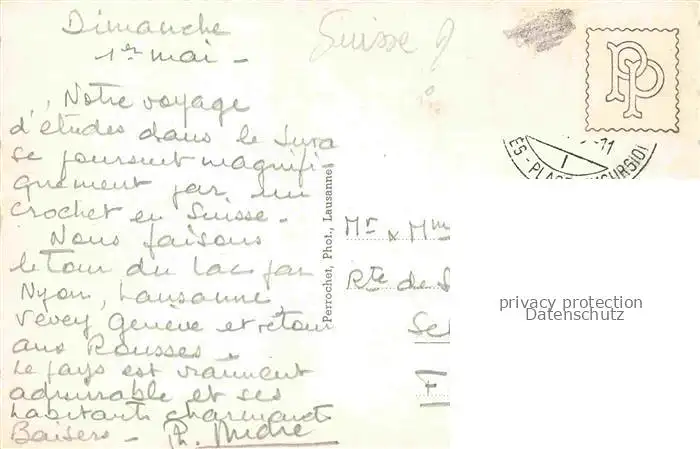 Dimanche
1er mai -
Suisse
Notre voyage
d'études dans le Jura
se poursuit magnifi-
quement par un
crochet en Suisse -
Nous faisons
le tour du Lac par
Nyon, Lausanne
Vevey Genève et retour
aux Rousses -
Le pays est vraiment
admirable et ses
habitants charmants
Baisers - Ph. André
Perrochet, Phot., Lausanne
PP
ES - PLACE
Mr x Mm
Rte de S
Se
F
privacy protection
Datenschutz